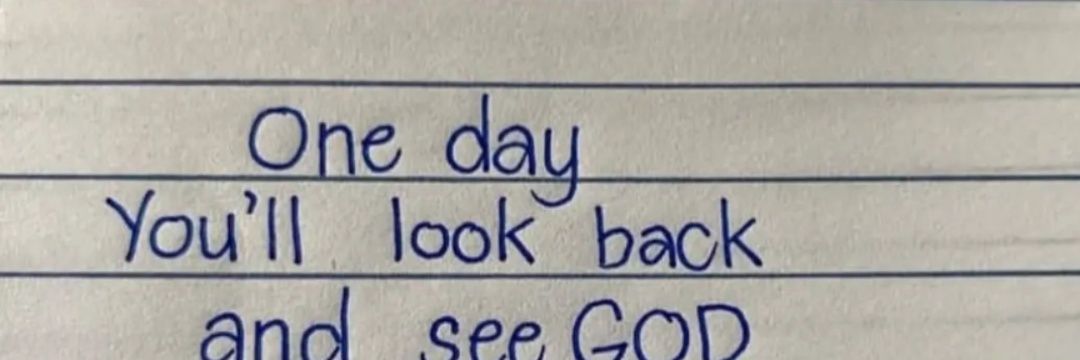 One day
You'll look back
and see GOD